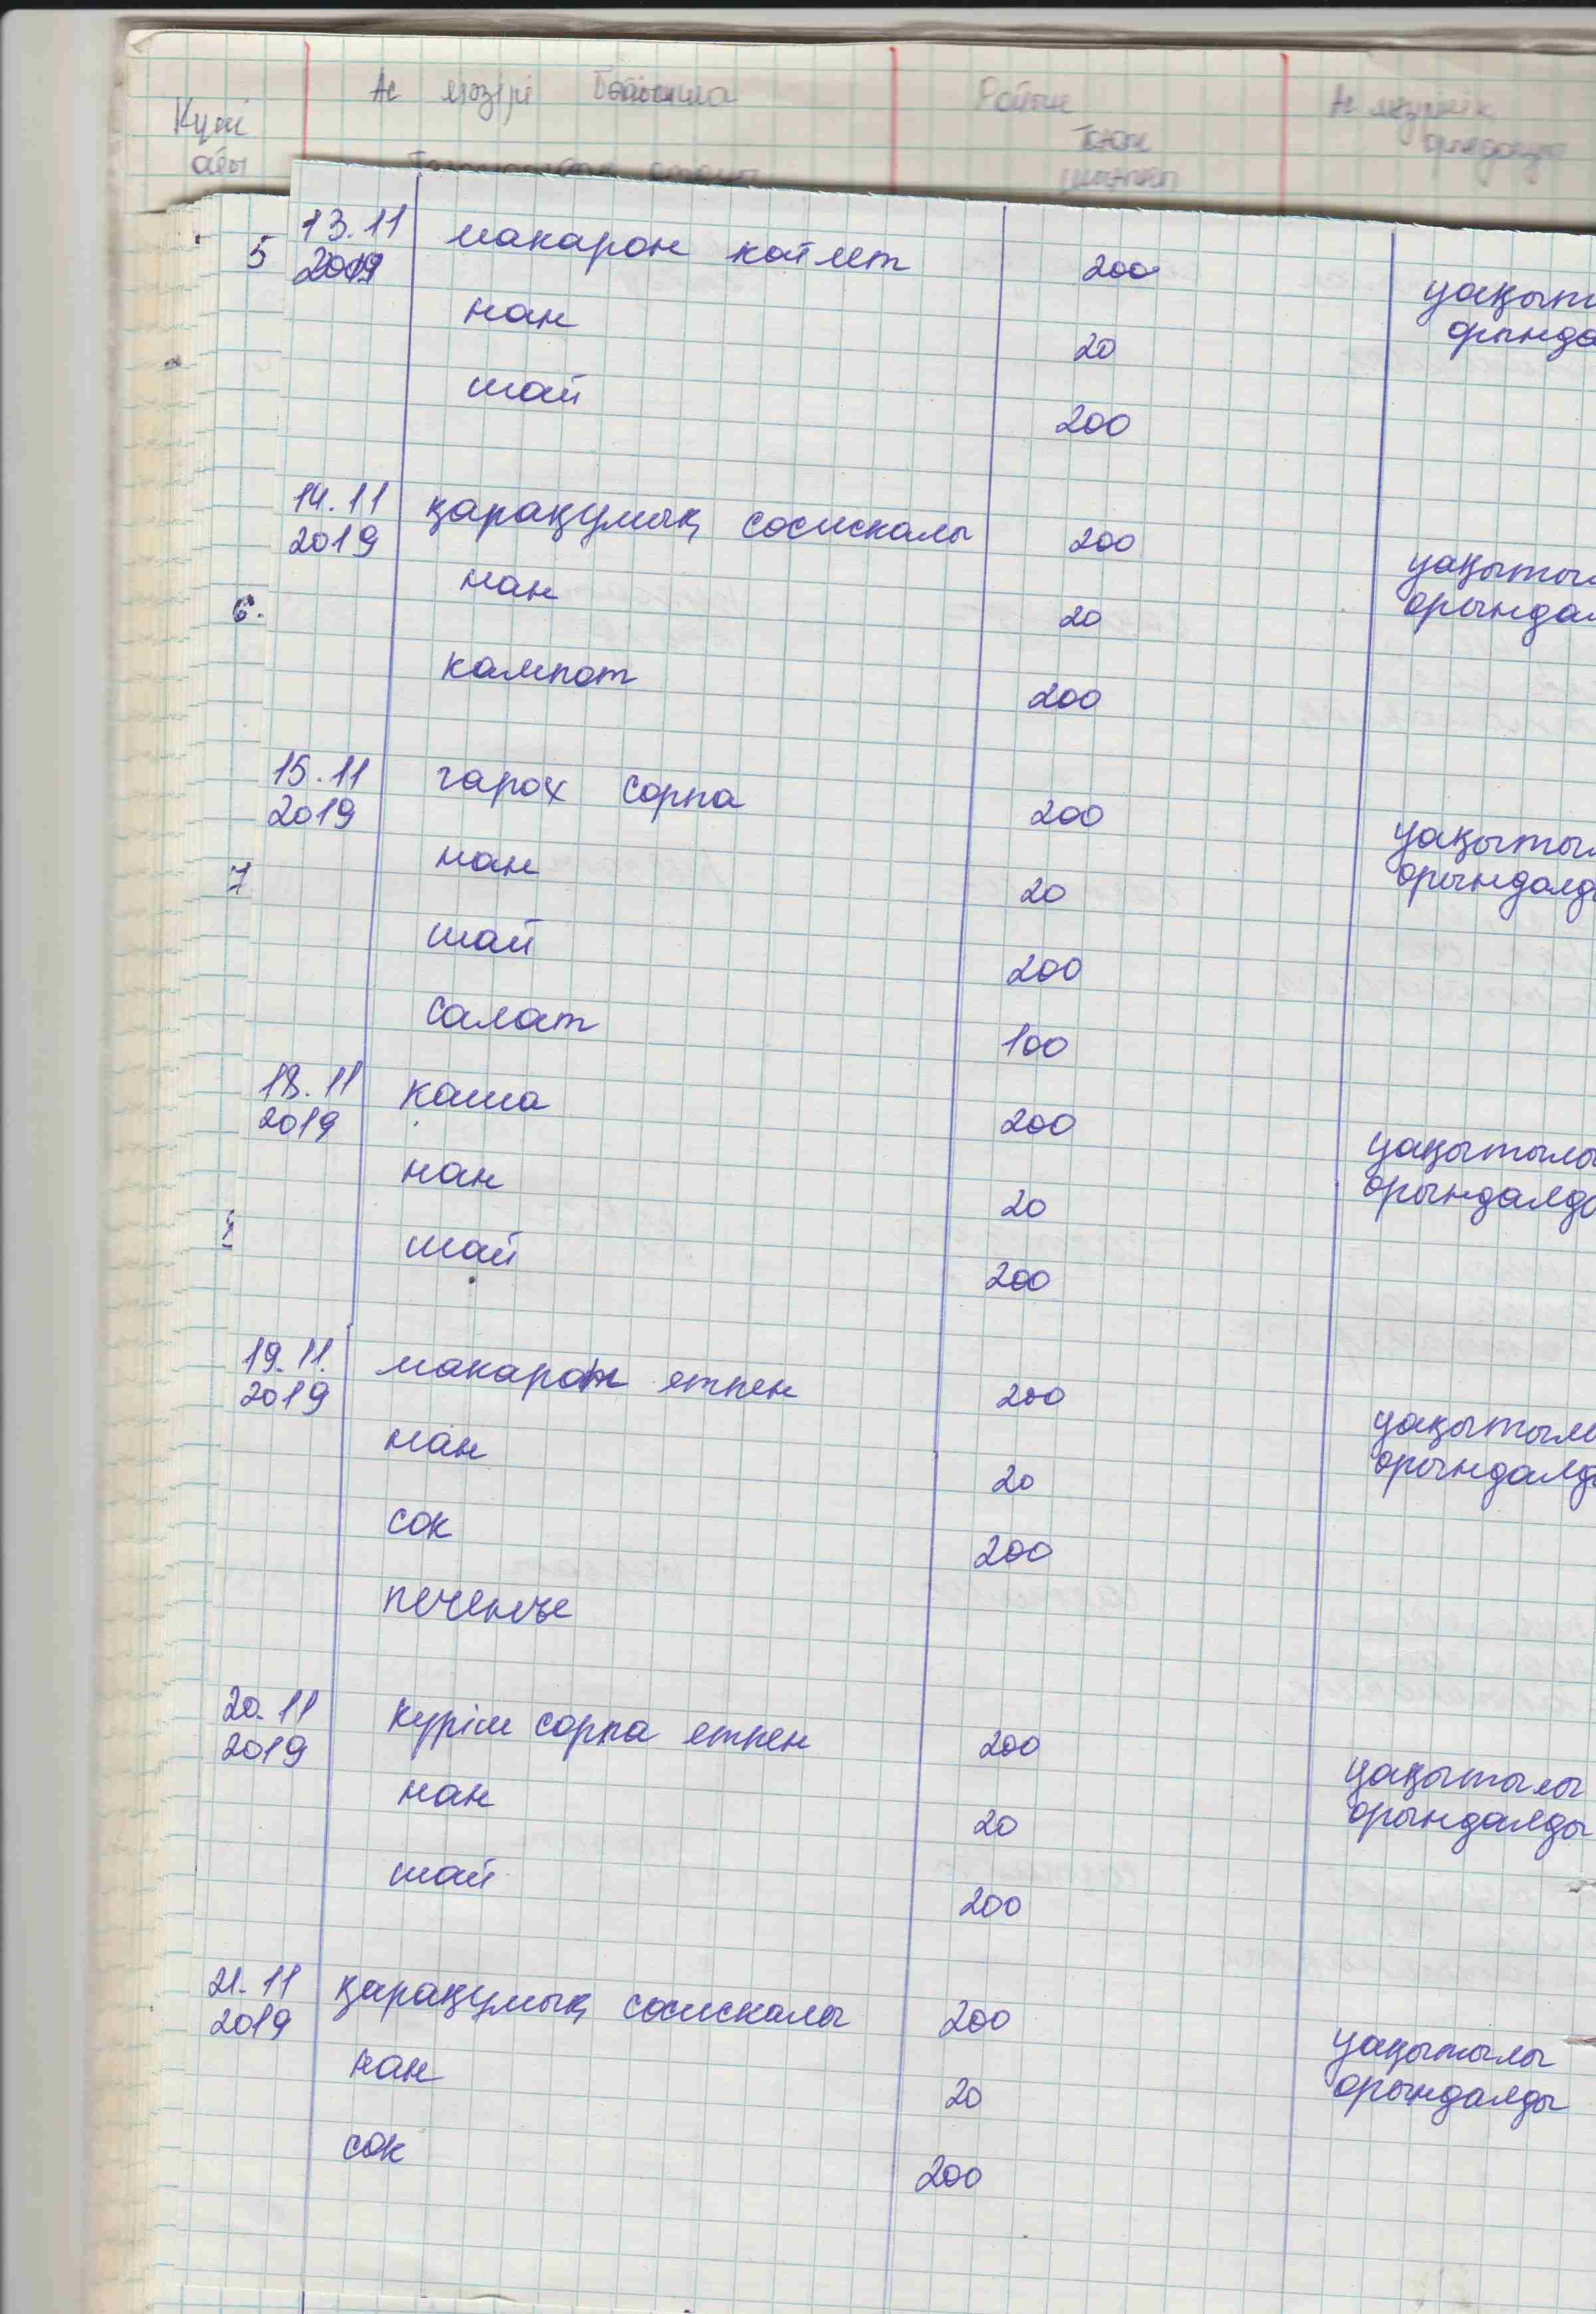 Күні Ас мәзірі
айы
5 13.11 макарон котлет 200 уақыт
2019 орында
нан 20
шай 200
14.11 қарақұмық сосискалы 200 уақытыл
2019 орындал
нан 20
6.
кампот 200
15.11 гарох сорпа 200 уақытыл
2019 орындалды
нан 20
7
шай 200
салат 100
18.11 каша 200 уақытылы
2019 орындалд
нан 20
шай 200
19.11. макарон етпен 200 уақытылы
2019 орындалд
нан 20
сок 200
печенье
20.11 күріш сорпа етпен 200 уақытылы
2019 орындалды
нан 20
шай 200
21.11 қарақұмық сосискалы 200 уақытылы
2019 орындалды
нан 20
сок 200